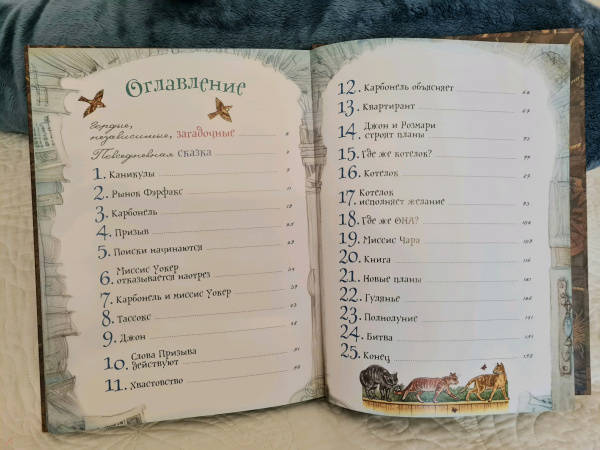 Оглавление
Гордые,
независимые, загадочные
Повседневная сказка
1. Каникулы
2. Рынок Фэрфакс
3. Карбонель
4. Призыв
5. Поиски начинаются
6. Миссис Уокер
отказывается наотрез
7. Карбонель и миссис Уокер
8. Тассокс
9. Джон
10. Слова Призыва
действуют
11. Хвастовство
12. Карбонель объясняет
13. Квартирант
14. Джон и Розмари
строят планы
15. Где же котелок?
16. Котелок
17. Котелок
исполняет желание
18. Где же ОНА?
19. Миссис Чара
20. Книга
21. Новые планы
22. Гулянье
23. Полнолуние
24. Битва
25. Конец